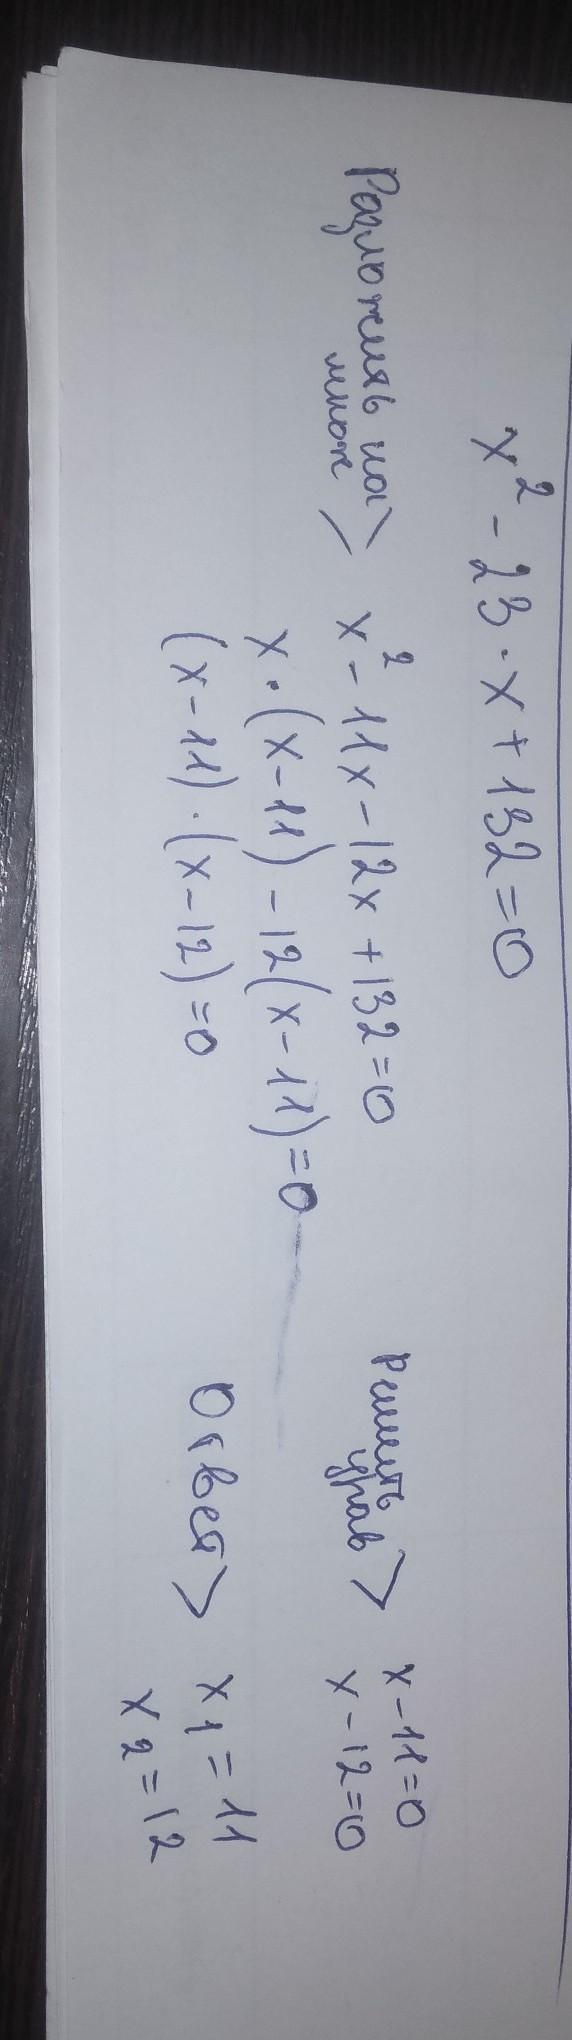 x² - 23 · x + 132 = 0
Разложить на множ >
x² - 11x - 12x + 132 = 0
x · (x - 11) - 12(x - 11) = 0
(x - 11) · (x - 12) = 0
Решить урав >
x - 11 = 0
x - 12 = 0
Ответ >
x1 = 11
x2 = 12